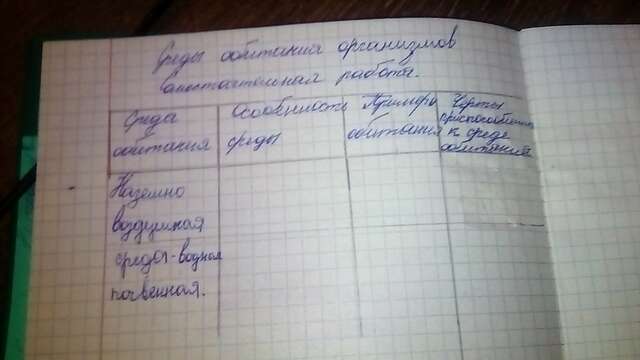 Среды обитания организмов
Самостоятельная работа.
Среда обитания
Особенность среды
Примеры обитания
Черты приспособления к среде обитания
Наземно
воздушная
среды-водная
почвенная.